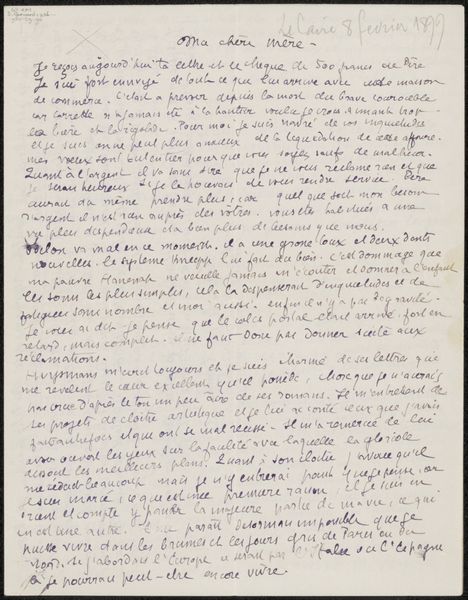 Le Caire 8 février 1899
Ma chère mère -
Je reçois aujourd'hui ta lettre et le chèque de 500 francs de Père
Je suis fort ennuyé de tout ce que lui arrive avec cette maison
de commerce. C'était à prévoir depuis la mort du brave
car Carrette n'a jamais été à la hauteur
la bière et la rigolade. Pour moi je suis navré de vos inquiétudes
et je suis on ne peut plus anxieux de la liquidation de cette affaire.
mes vœux sont pour que vous soyez saufs de malheur.
Quant à l'argent il va sans dire que je ne vous réclame rien et que
je serais heureux si je le pouvais de vous rendre service. Père
aurait du même prendre plus, car quel que soit mon besoin
d'argent il n'est rien auprès des vôtres. vous êtes habitués à une
vie plus dépendieuse et a bien plus de besoins que nous.
va mal en ce moment. il a une grosse toux et deux dents
nouvelles. le système Kneipp lui fait du bien. C'est dommage que
ma pauvre Hanenah ne veuille jamais m'écouter et donner à l'enfant
les soins les plus simples, cela la dispenserait d'inquiétudes et de
fatigues sans nombre et moi aussi. enfin il n'y a pas de gravité.
je pense que le colis postal était arrivé, fort en
retard, mais complet. il ne faut donc pas donner suite aux
réclamations.
Huysmans m'écrit toujours et je suis charmé de ses lettres que
me révèlent le cœur excellent qu'il possède, chose que je n'aurais
pas crue d'après le ton un peu de ses romans. Il m'entretient de
ses projets de cloître artistique et je lui raconte ceux que j'avais
faits autrefois et qui ont si mal réussi. Il m'a remercié de lui
avoir ouvert les yeux sur la facilité avec laquelle
les meilleurs plans. Quant à son cloître j'avoue qu'il
me séduit beaucoup mais je n'y entrerai point car
je suis marié, ce qui est une première raison, et je suis en
orient et compte y passer la majeure partie de ma vie, ce qui
en est une autre. Il me paraît désormais impossible que je
puisse vivre dans les brumes et les jours gris de Paris ou du
Nord. si j'abordais l'Europe ce serait par l'Italie ou l'Espagne
là je pourrais peut-être encore vivre.